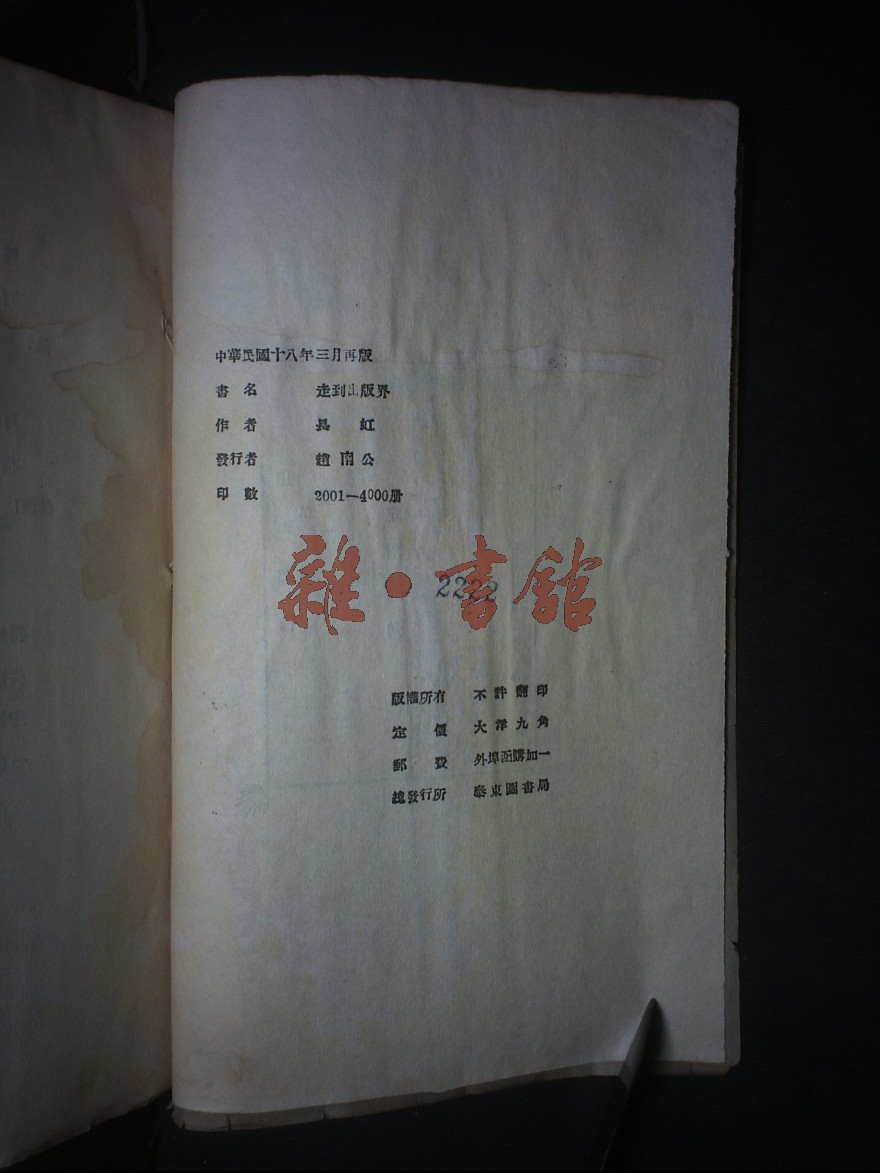 中華民國十八年三月再版
書名 走到出版界
作者 長虹
發行者 趙南公
印數 2001—4000册
雜·書館
2222
版權所有 不許翻印
定價 大洋九角
郵費 外埠函購加一
總發行所 泰東圖書局